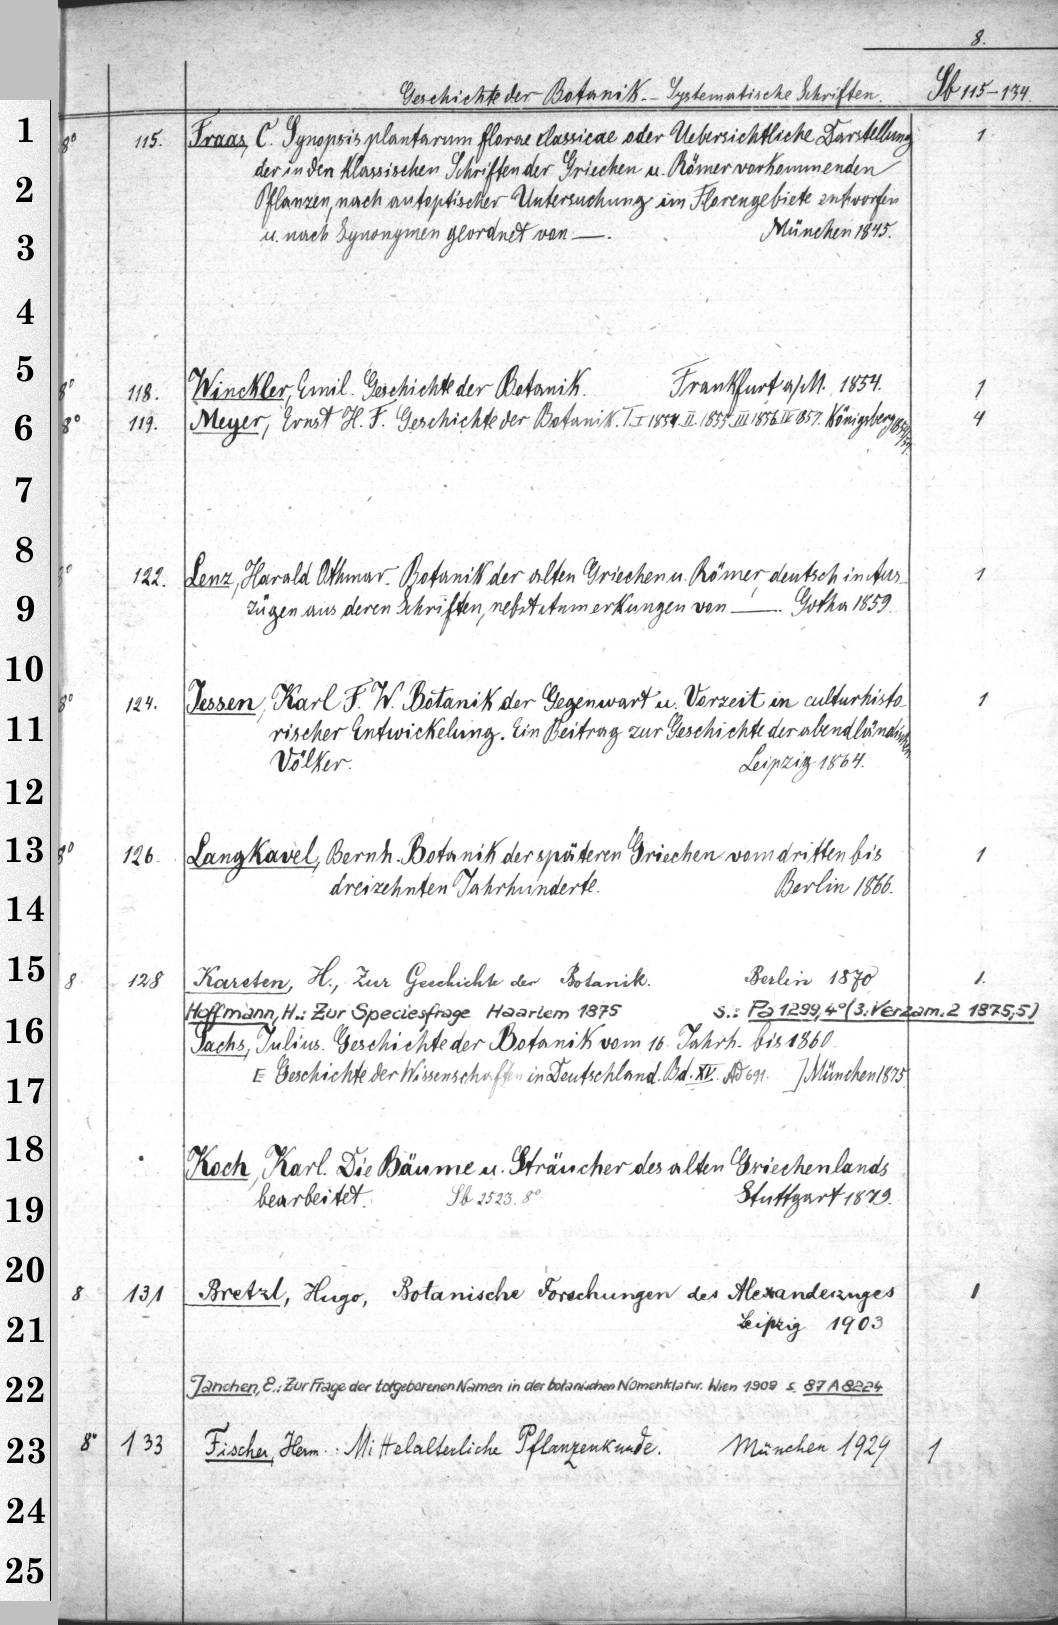 8.
Geschichte der Botanik. - Systematische Schriften. Sb 115-134
1 8° 115. Fraas, C. Synopsis plantarum florae classicae oder Uebersichtliche Darstellung 1
2 der in den klassischen Schriften der Griechen u. Römer vorkommenden
Pflanzen, nach autoptischer Untersuchung im Florengebiete entworfen
3 u. nach Synonymen geordnet von —. München 1845.
4
5 8° 118. Winckler, Emil. Geschichte der Botanik. Frankfurt a/M. 1854. 1
6 8° 119. Meyer, Ernst H. F. Geschichte der Botanik. T. I 1854. II. 1855. III 1856. IV 1857. Königsberg 1854/57. 4
7
8 8° 122. Lenz, Harald Othmar. Botanik der alten Griechen u. Römer, deutsch in Aus- 1
9 zügen aus deren Schriften, nebst Anmerkungen von —. Gotha 1859.
10
8° 124. Jessen, Karl F. W. Botanik der Gegenwart u. Vorzeit in culturhisto- 1
11 rischer Entwickelung. Ein Beitrag zur Geschichte der abendländischen
12 Völker. Leipzig 1864.
13 8° 126. Langkavel, Bernh. Botanik der späteren Griechen vom dritten bis 1
14 dreizehnten Jahrhunderte. Berlin 1866.
15 8 128 Karsten, H., Zur Geschichte der Botanik. Berlin 1870 1.
Hoffmann, H.: Zur Speciesfrage Haarlem 1875 s.: Pa 1299,4° (3:Verzam. 2 1875,5)
16 Sachs, Julius. Geschichte der Botanik vom 16. Jahrh. bis 1860.
17 [Geschichte der Wissenschaften in Deutschland. Bd. XV. Ad 691. ] München 1875
18 Koch, Karl. Die Bäume u. Sträucher des alten Griechenlands
19 bearbeitet. Sb 2523. 8° Stuttgart 1879.
20 8 131 Bretzl, Hugo, Botanische Forschungen des Alexanderzuges 1
21 Leipzig 1903
22 Janchen, E.: Zur Frage der totgeborenen Namen in der botanischen Nomenklatur. Wien 1909 s. 87 A 8224
23 8° 133 Fischer, Herm.: Mittelalterliche Pflanzenkunde. München 1929 1
24
25